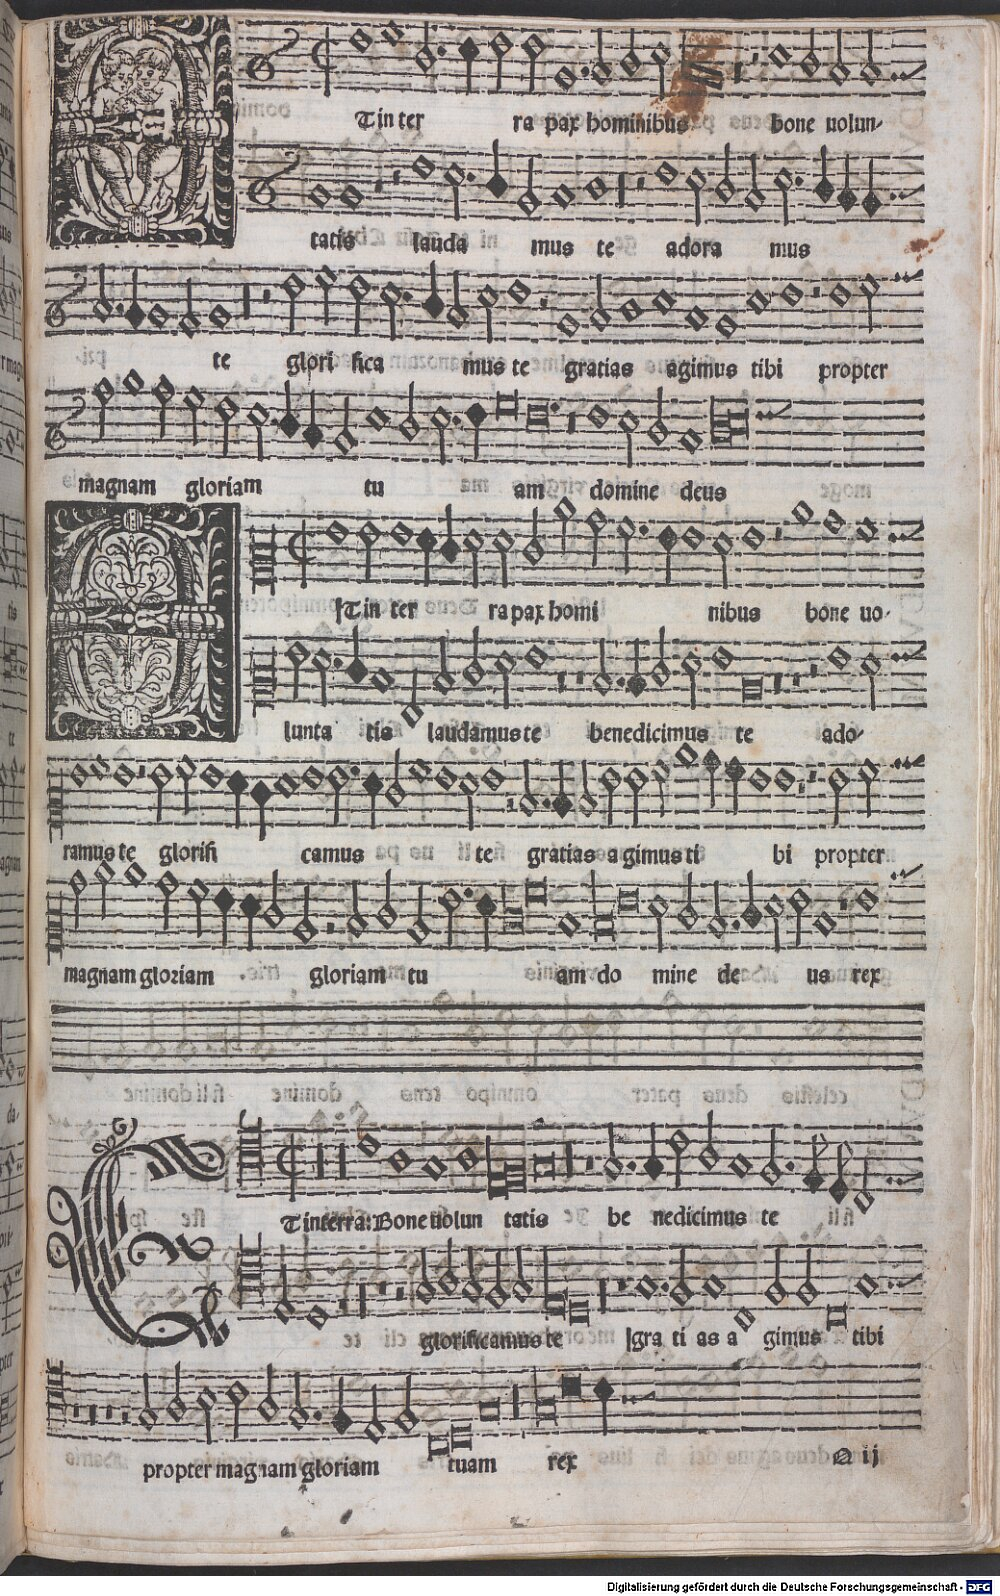 Et in ter ra pax hominibus bone uolun-
tatis lauda mus te adora mus
te glori fica mus te gratias agimus tibi propter
magnam gloriam tu am domine deus
Et in ter ra pax homi nibus bone uo-
lunta tis laudamus te benedicimus te ado-
ramus te glorifi camus te gratias a gimus ti bi propter
magnam gloriam gloriam tu am do mine de us rex
Et in terra: Bone uolun tatis be nedicimus te
glorificamus te gra ti as a gimus tibi
propter magnam gloriam tuam rex
Q ij
Digitalisierung gefördert durch die Deutsche Forschungsgemeinschaft - DFG